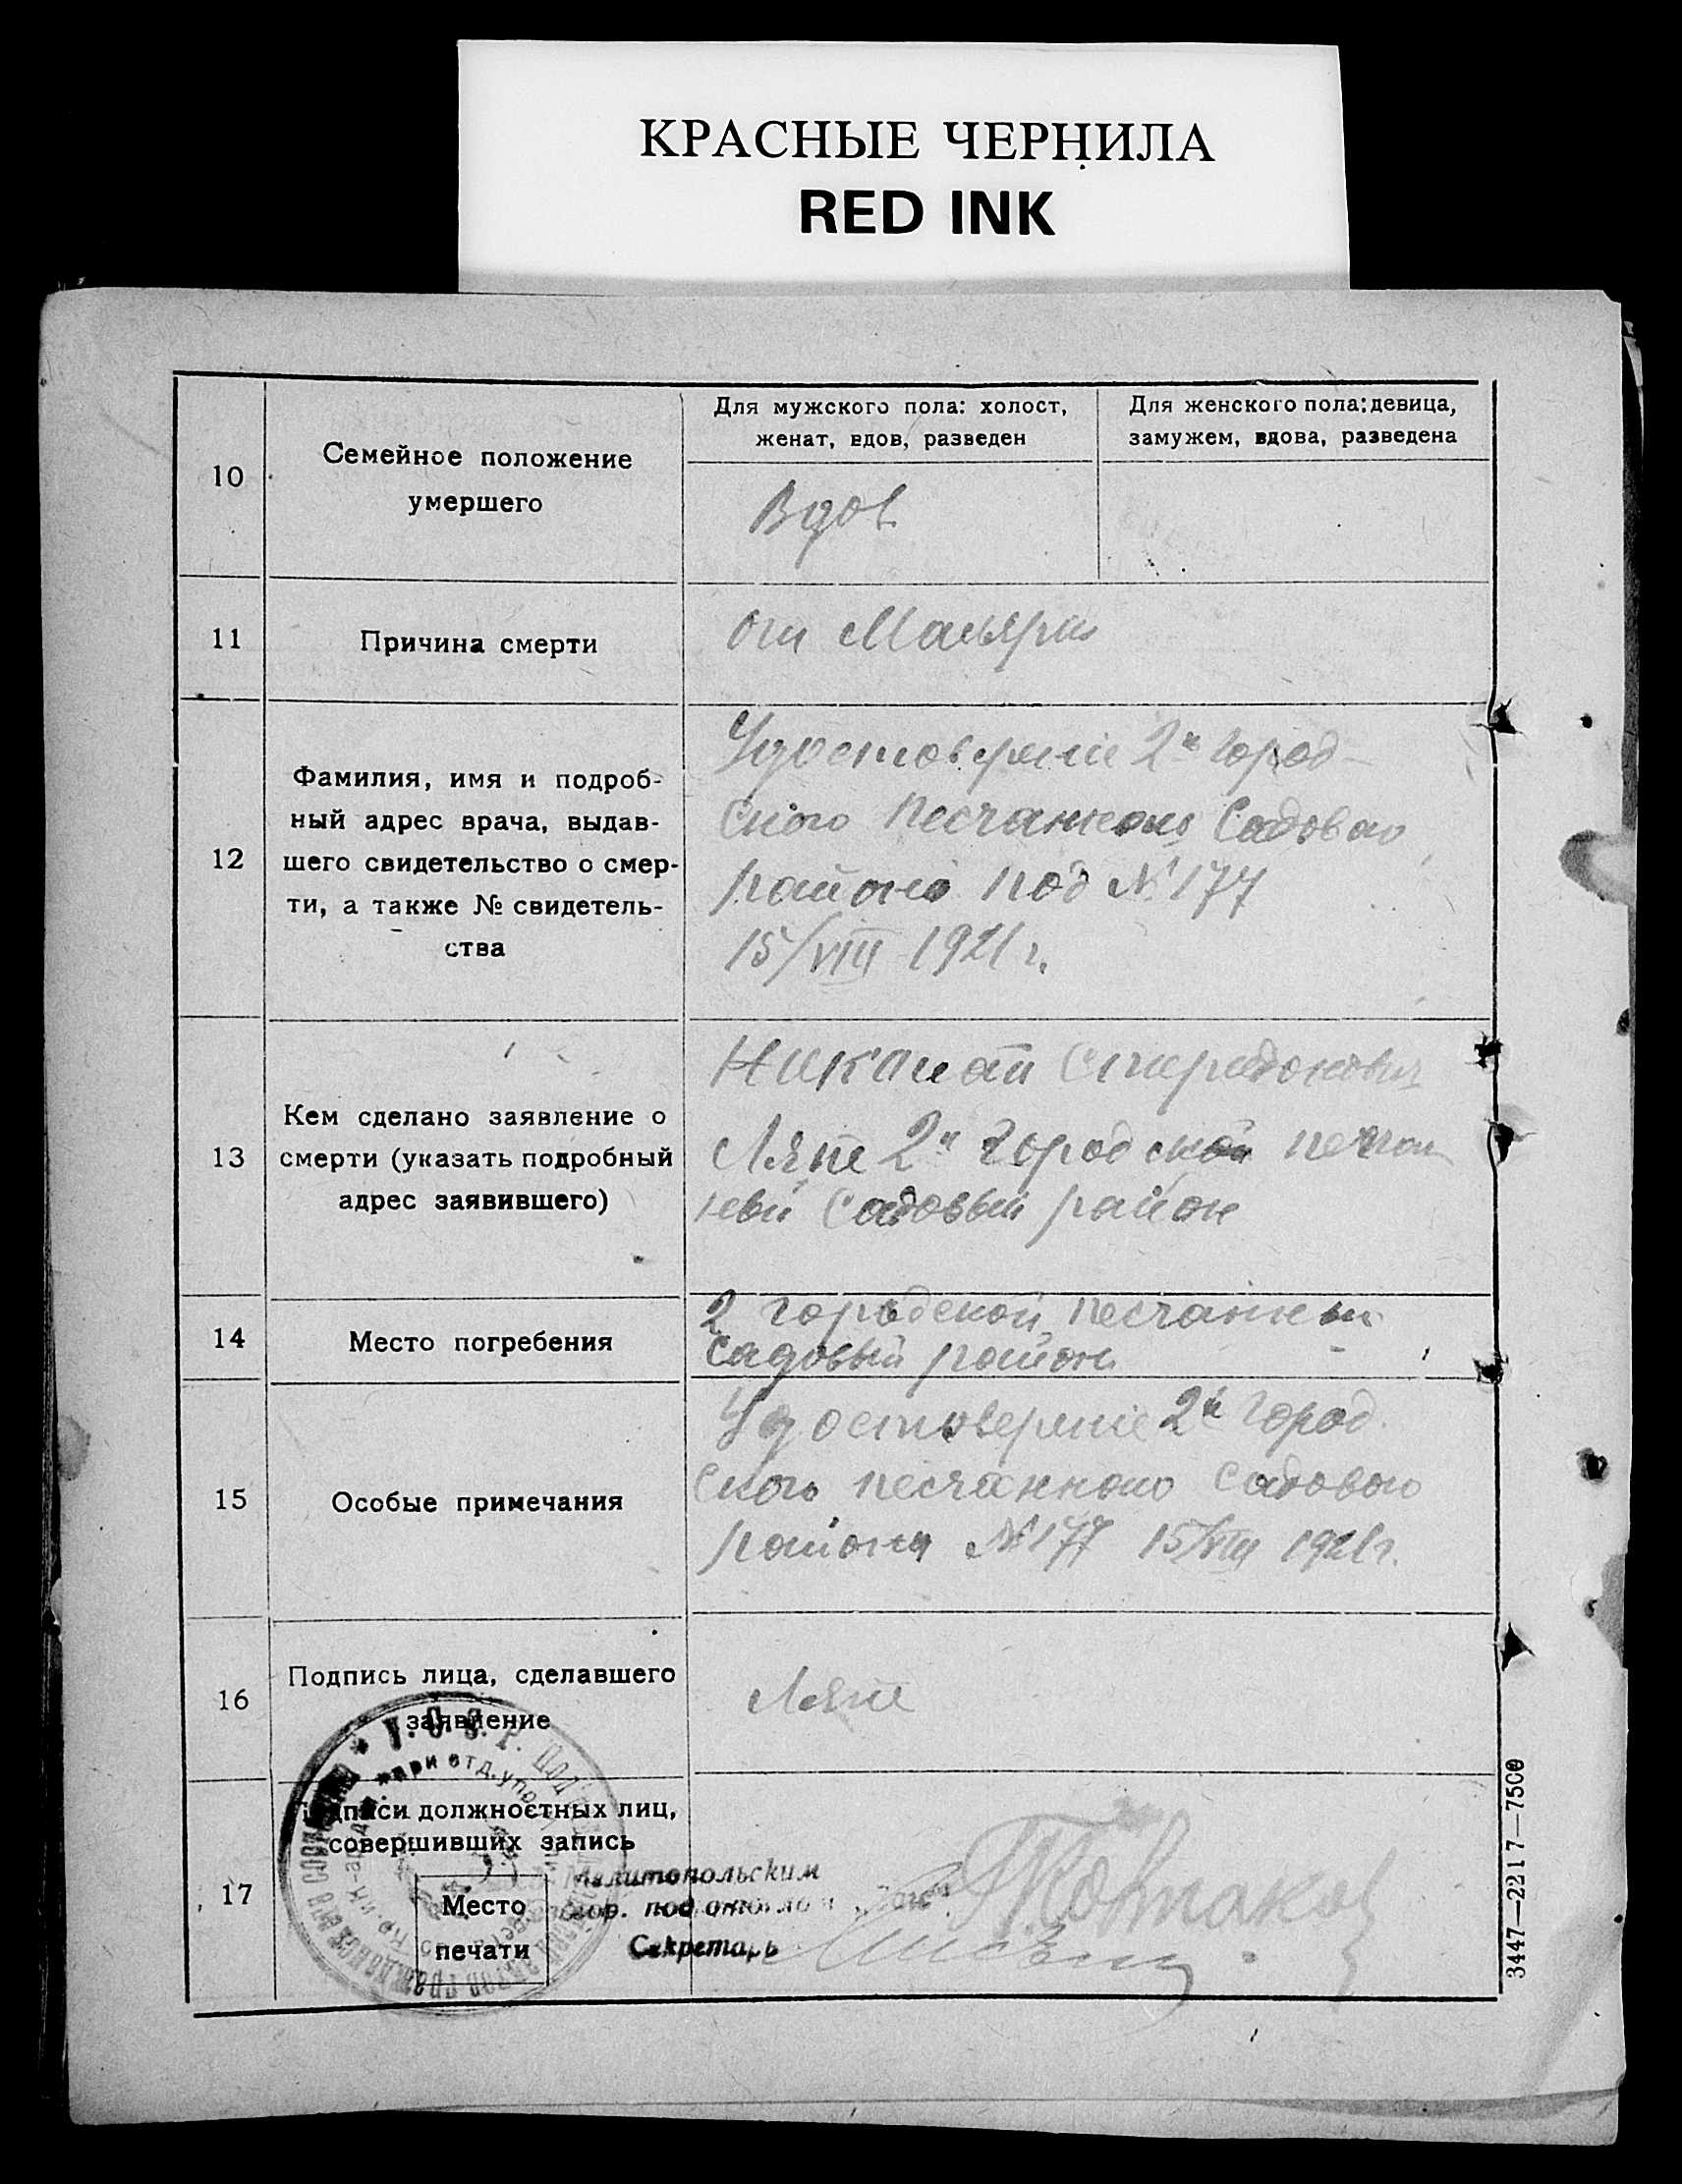 КРАСНЫЕ ЧЕРНИЛА
RED INK
10
Семейное положение
умершего
Для мужского пола: холост,
женат, вдов, разведен
Для женского пола: девица,
замужем, вдова, разведена
Вдов
11
Причина смерти
от Малярии
12
Фамилия, имя и подроб-
ный адрес врача, выдав-
шего свидетельство о смер-
ти, а также № свидетель-
ства
Удостоверение 2й город-
ского песчаного Садоваго
района под № 177
15/VIII 1921 г.
13
Кем сделано заявление о
смерти (указать подробный
адрес заявившего)
Спиридонович
Ляпе 2й городской песчан
ный Садовый район
14
Место погребения
2 городской песчанный
Садовый район
15
Особые примечания
Удостоверение 2й город
ского песчанного садового
района № 177 15/VIII 1921 г.
16
Подпись лица, сделавшего
заявление
Ляпе
17
Подписи должностных лиц,
совершивших запись
Место
печати
У.С.С.Р.
при отд. упр.
Мелитопольским
Секретарь
3447—2217—7500